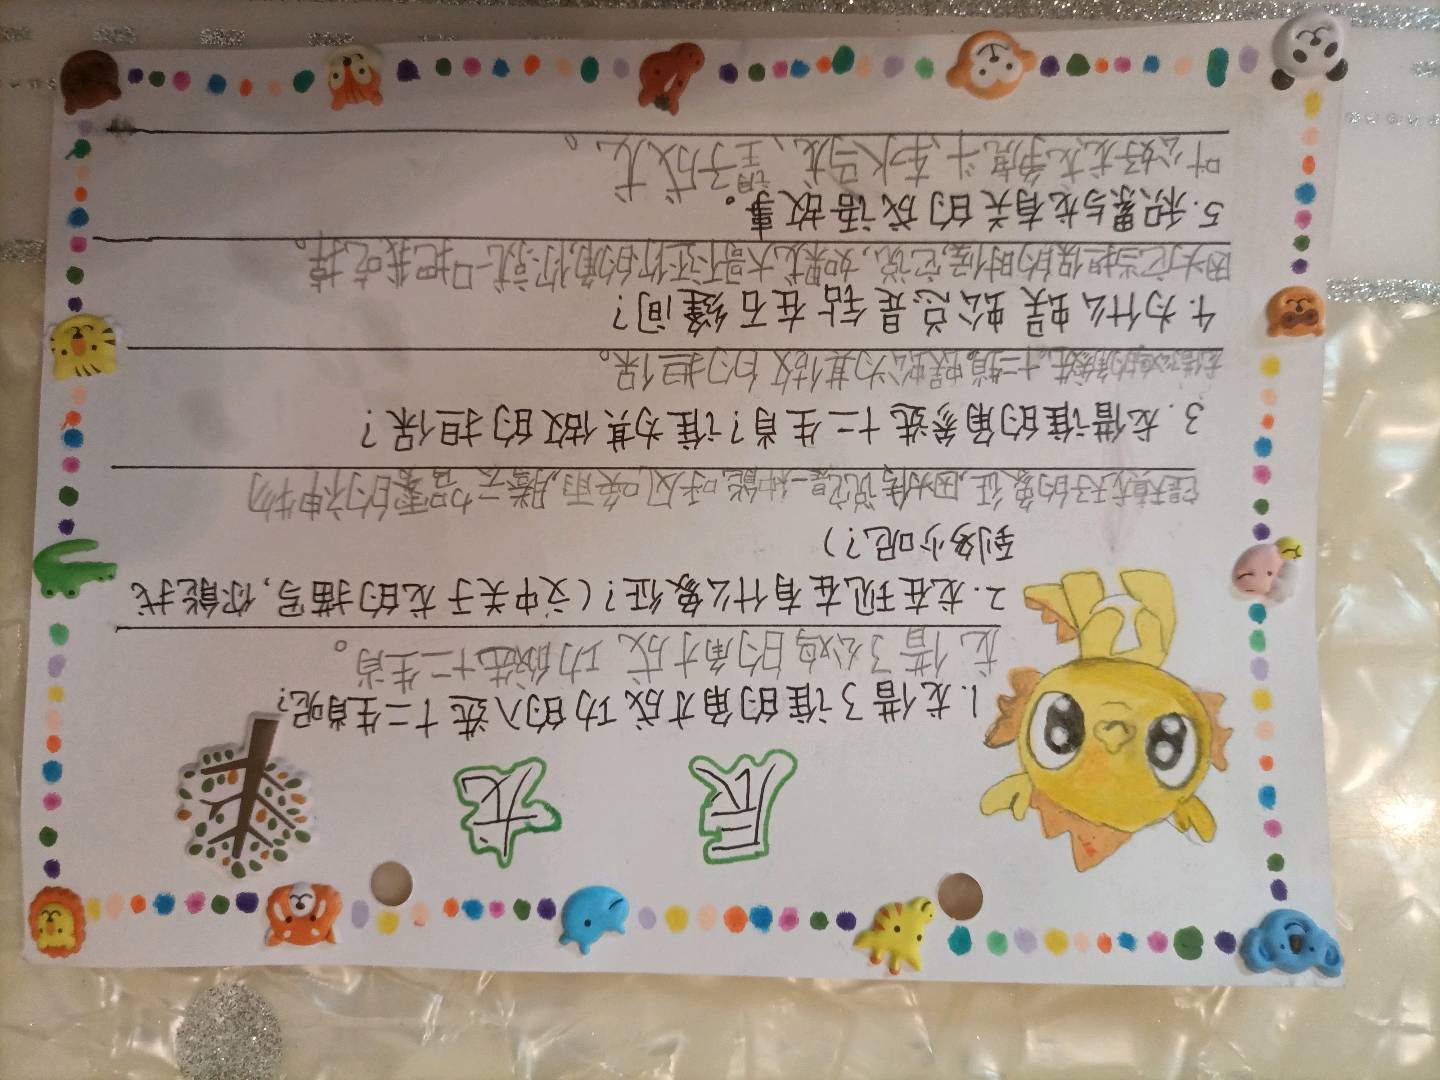 辰龙
1.龙借了谁的角才成功的入选十二生肖呢?
龙借了公鸡的角才成功的入选十二生肖。
2.龙在现在有什么象征?(文中关于龙的描写,你能找
到多少呢?)
是天子的象征,因为传说它是一种能呼风唤雨,腾云驾雾的神物
3.龙借谁的角参选十二生肖?谁为其做的担保?
龙借公鸡的角参选十二生肖。蜈蚣为其做的担保。
4.为什么蜈蚣总是钻在石缝间?
因为它当担保的时候,它说,如果龙大哥不还你的角,你就一口把我吃掉。
5.积累与龙有关的成语故事。
叶公好龙、龙争虎斗、车水马龙、望子成龙。